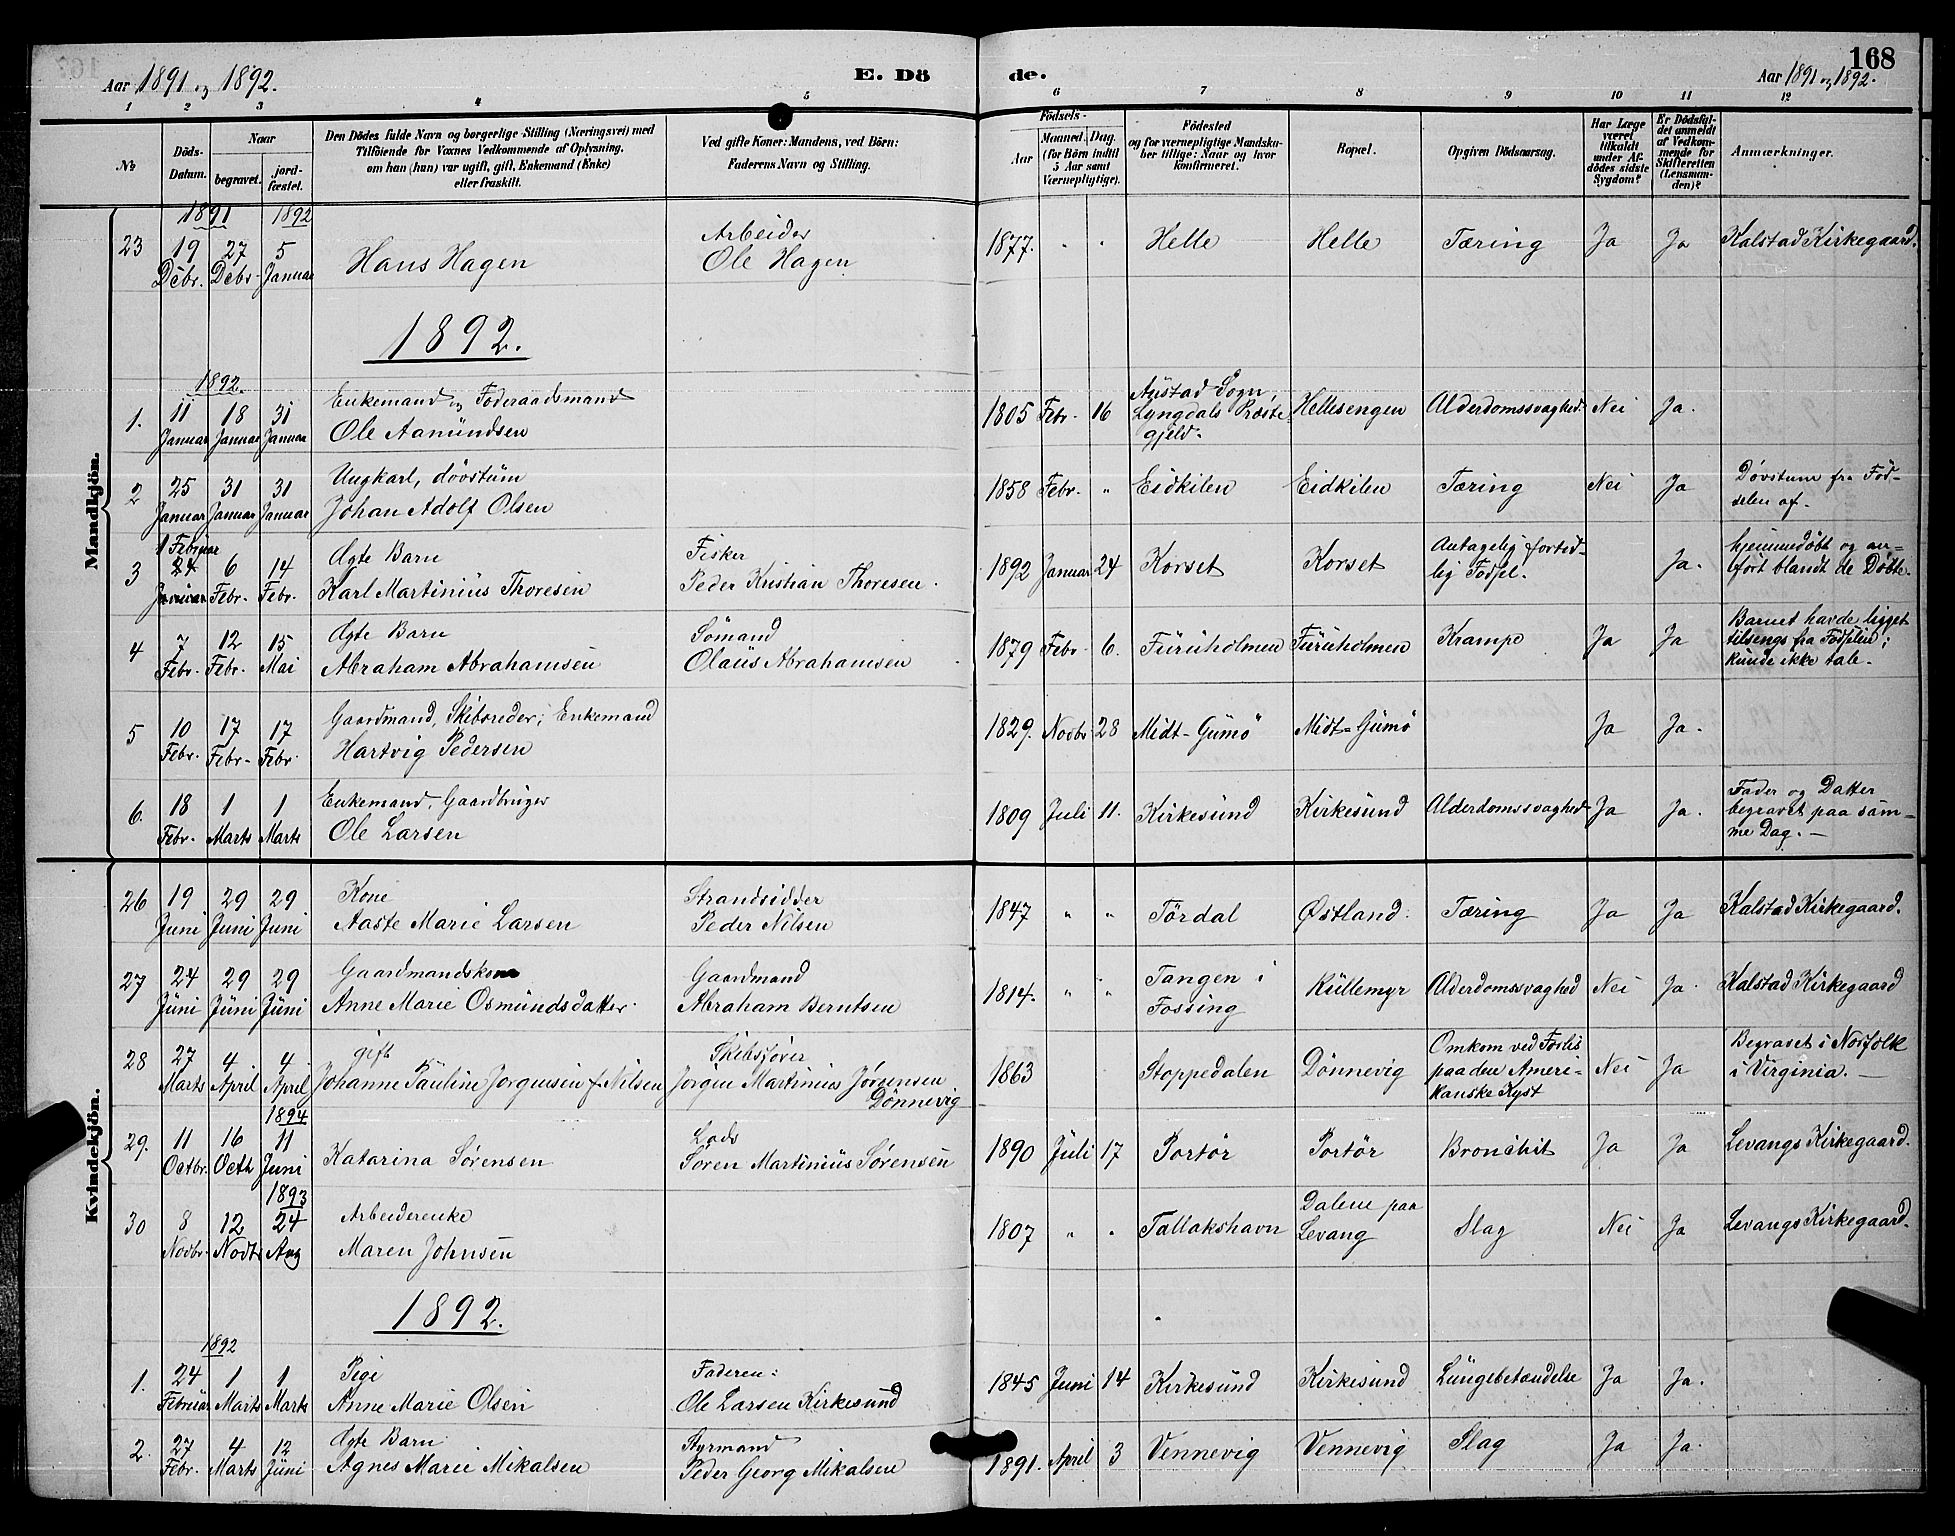 168
Aar 1891 og 1892. E. Dö de. Aar 1891 og 1892.
1 2 3 4 5 6 7 8 10 9 11 12
No
Döds-Datum.
Naar
begravet.
jordfæstet.
Den Dödes fulde Navn og borgerlige Stilling (Næringsvei) med
Tilföiende for Voxnes Vedkommende af Oplysning,
om han (hun) var ugift, gift, Enkemand (Enke)
eller fraskilt.
Ved gifte Koner: Mandens, ved Börn:
Faderens Navn og Stilling.
Födsels-
Aar
Maaned. Dag.
(for Börn indtil
5 Aar samt
Værnepligtige).
Födested
og for værnepligtige Mandskaber tillige: Naar og hvor
konfirmeret.
Bopæl.
Opgiven Dödsaarsag.
Har Læge
været
tilkaldt
under Afdödes sidste
Sygdom?
Er Dödsfaldet anmeldt
af Vedkommende for
Skifteretten
(Lensmanden)?
Anmærkninger.
Mandkjön.
1891 1892
23 19 Debr. 27 Debr. 5 Januar Hans Hagen Arbeider Ole Hagen 1877. " " Helle Helle Tæring Ja Ja Kalstad Kirkegaard.
1892.
1892.
1. 11 Januar 18 Januar 31 Januar Enkemand og Föderaadsmand Ole Aamundsen 1805 Febr. 16 Austad Sogn, Lyngdals Præstegjeld. Hellesengen Alderdomssvaghed. Nei Ja.
2 25 Januar 31 Januar 31 Januar Ungkarl, dövstum Johan Adolf Olsen 1858 Febr. " Eidkilen Eidkilen Tæring Nei Ja Dövstum fra Födselen af.
3 1 Februar 24 Januar 6 Febr. 14 Febr. Ægte Barn Karl Martinius Thoresen Fisker Peder Kristian Thoresen. 1892 Januar 24 Korset Korset Antagelig fortidlig Födsel. Ja. hjemmedöbt og anfört blandt de Döbte.
4 7 Febr. 12 Febr. 15 Mai Ægte Barn Abraham Abrahamsen Sömand Olaus Abrahamsen 1879 Febr. 6. Furuholmen Furuholmen Krampe Ja Ja Barnet havde ligget tilsengs fra Födselen; kunde ikke tale.
5 10 Febr. 17 Febr. 17 Febr. Gaardmand, Skibsreder; Enkemand Hartvig Pedersen 1829. Novbr 28 Midt-Gumö Midt-Gumö Ja Ja.
6. 18 Febr. 1 Marts 1 Marts Enkemand, Gaardbruger Ole Larsen 1809 Juli 11. Kirkesund Kirkesund Alderdomssvaghed Ja Ja. Fader og Datter begravet paa samme Dag. —
Kvindekjön.
26 19 Juni 29 Juni 29 Juni Kone Aaste Marie Larsen Strandsidder Peder Nilsen 1847 " " Tördal Østland. Tæring Ja Ja Kalstad Kirkegaard.
27 24 Juni 29 Juni 29 Juni Gaardmandskone Anne Marie Osmundsdatter. Gaardmand Abraham Berntsen 1814. " " Tangen i Fossing Kullemyr Alderdomssvaghed Nei Ja. Kalstad Kirkegaard
28 27 Marts 4 April 4 April gift Johanne Pauline Jörgensen f. Nilsen Skibsförer Jörgen Martinius Jørgensen Dönnevig 1863 Stoppedalen Dönnevig Omkom ved Forlis paa den Amerikanske Kyst Nei Ja Begravet i Norfolk i Virginia. —
1894
29. 11 Octbr. 16 Octb 11 Juni Katarina Sørensen Lods Sören Martinius Sørensen 1890 Juli 17 Portör Portör Bronchit Ja Ja Levangs Kirkegaard.
1893
30 8 Novbr. 12 Novb 24 Aug Arbeiderenke Maren Johnsen 1807 " " Tallakshavn Dalene paa Levang Slag Nei Ja Levangs Kirkegaard.
1892.
1892
1. 24 Februar 1 Marts 1 Marts Pige Anne Marie Olsen Faderen: Ole Larsen Kirkesund 1845 Juni 14 Kirkesund Kirkesund Lungebetændelse Ja Ja.
2. 27 Febr. 4 Marts 12 Juni Ægte Barn Agnes Marie Mikalsen Styrmand Peder Georg Mikalsen 1891. April 3 Vennevig Vennevig Slag Ja Ja.